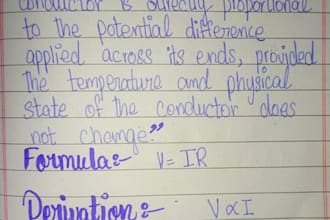 conductor is directly proportional
to the potential difference
applied across its ends, provided
the temperature and physical
state of the conductor does
not change."
Formula:- V = IR
Derivation:- V ∝ I